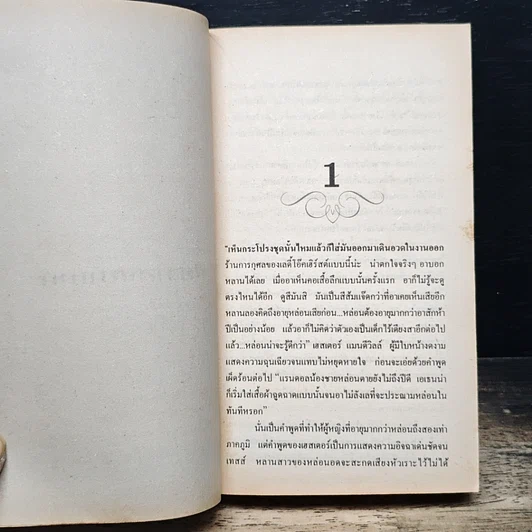 1
"เห็นกระโปรงชุดนั้นไหมแล้วก็ใส่มันออกมาเดินอวดในงานออก
ร้านการกุศลของเลดี้โอ๊คเฮิร์สต์แบบนี้น่ะ น่าตกใจจริงๆ อาบอก
หลานได้เลย เมื่ออาเห็นคอเสื้อลึกแบบนั้นครั้งแรก อาก็ไม่รู้จะดู
ตรงไหนได้อีก ดูสีมันสิ มันเป็นสีส้มแจ๊ดกว่าที่อาเคยเห็นเสียอีก
หลานลองคิดถึงอายุหล่อนเสียก่อน...หล่อนต้องอายุมากกว่าอาสักห้า
ปีเป็นอย่างน้อย แล้วอาก็ไม่คิดว่าตัวเองเป็นเด็กไร้เดียงสาอีกต่อไป
แล้ว..หล่อนน่าจะรู้ดีกว่า" เฮสเตอร์ แมนดีวิลล์ ผู้มีใบหน้างดงาม
แสดงความฉุนเฉียวจนแทบไม่หยุดหายใจ ก่อนจะเอ่ยด้วยคำพูด
เผ็ดร้อนต่อไป "แรนดอลน้องชายหล่อนตายยังไม่ถึงปีดี เอเธนน่า
ก็เริ่มใส่เสื้อผ้าฉูดฉาดแบบนั้นจนอาไม่ลังเลที่จะประณามหล่อนใน
ทันทีหรอก"
นั่นเป็นคำพูดที่ทำให้ผู้หญิงที่อายุมากกว่าหล่อนถึงสองเท่า
ภาคภูมิ แต่คำพูดของเฮสเตอร์เป็นการแสดงความอิจฉาเด่นชัดจน
เทสส์ หลานสาวของหล่อนอดจะสะกดเสียงหัวเราะไว้ไม่ได้